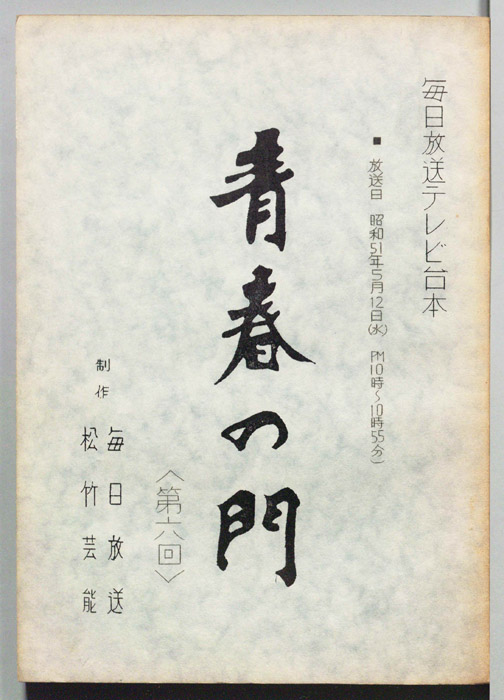 毎日放送テレビ台本
■ 放送日 昭和51年5月12日(水) PM10時~10時55分)
青春の門
〈第六回〉
制作 毎日放送
松竹芸能